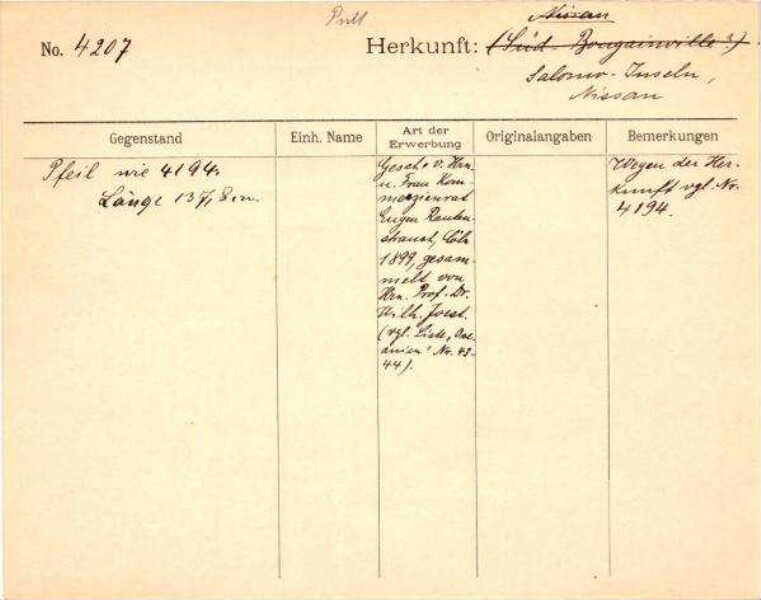 Pult
Nissan
No. 4207
Herkunft: (Süd-Bougainville?)
Salomo-Inseln,
Nissan
Gegenstand
Einh. Name
Art der
Erwerbung
Originalangaben
Bemerkungen
Pfeil wie 4194.
Länge 137,8 cm.
Gesch. v. Hrn.
u. Frau Kom-
merzienrat
Eugen Rauten-
strauch, Cöln
1899, gesam-
melt von
Hrn. Prof. Dr.
Wilh. Joest.
(vgl. Liste „Oze-
anien" Nr. 43-
44).
Wegen der Her-
kunft vgl. Nr.
4194.